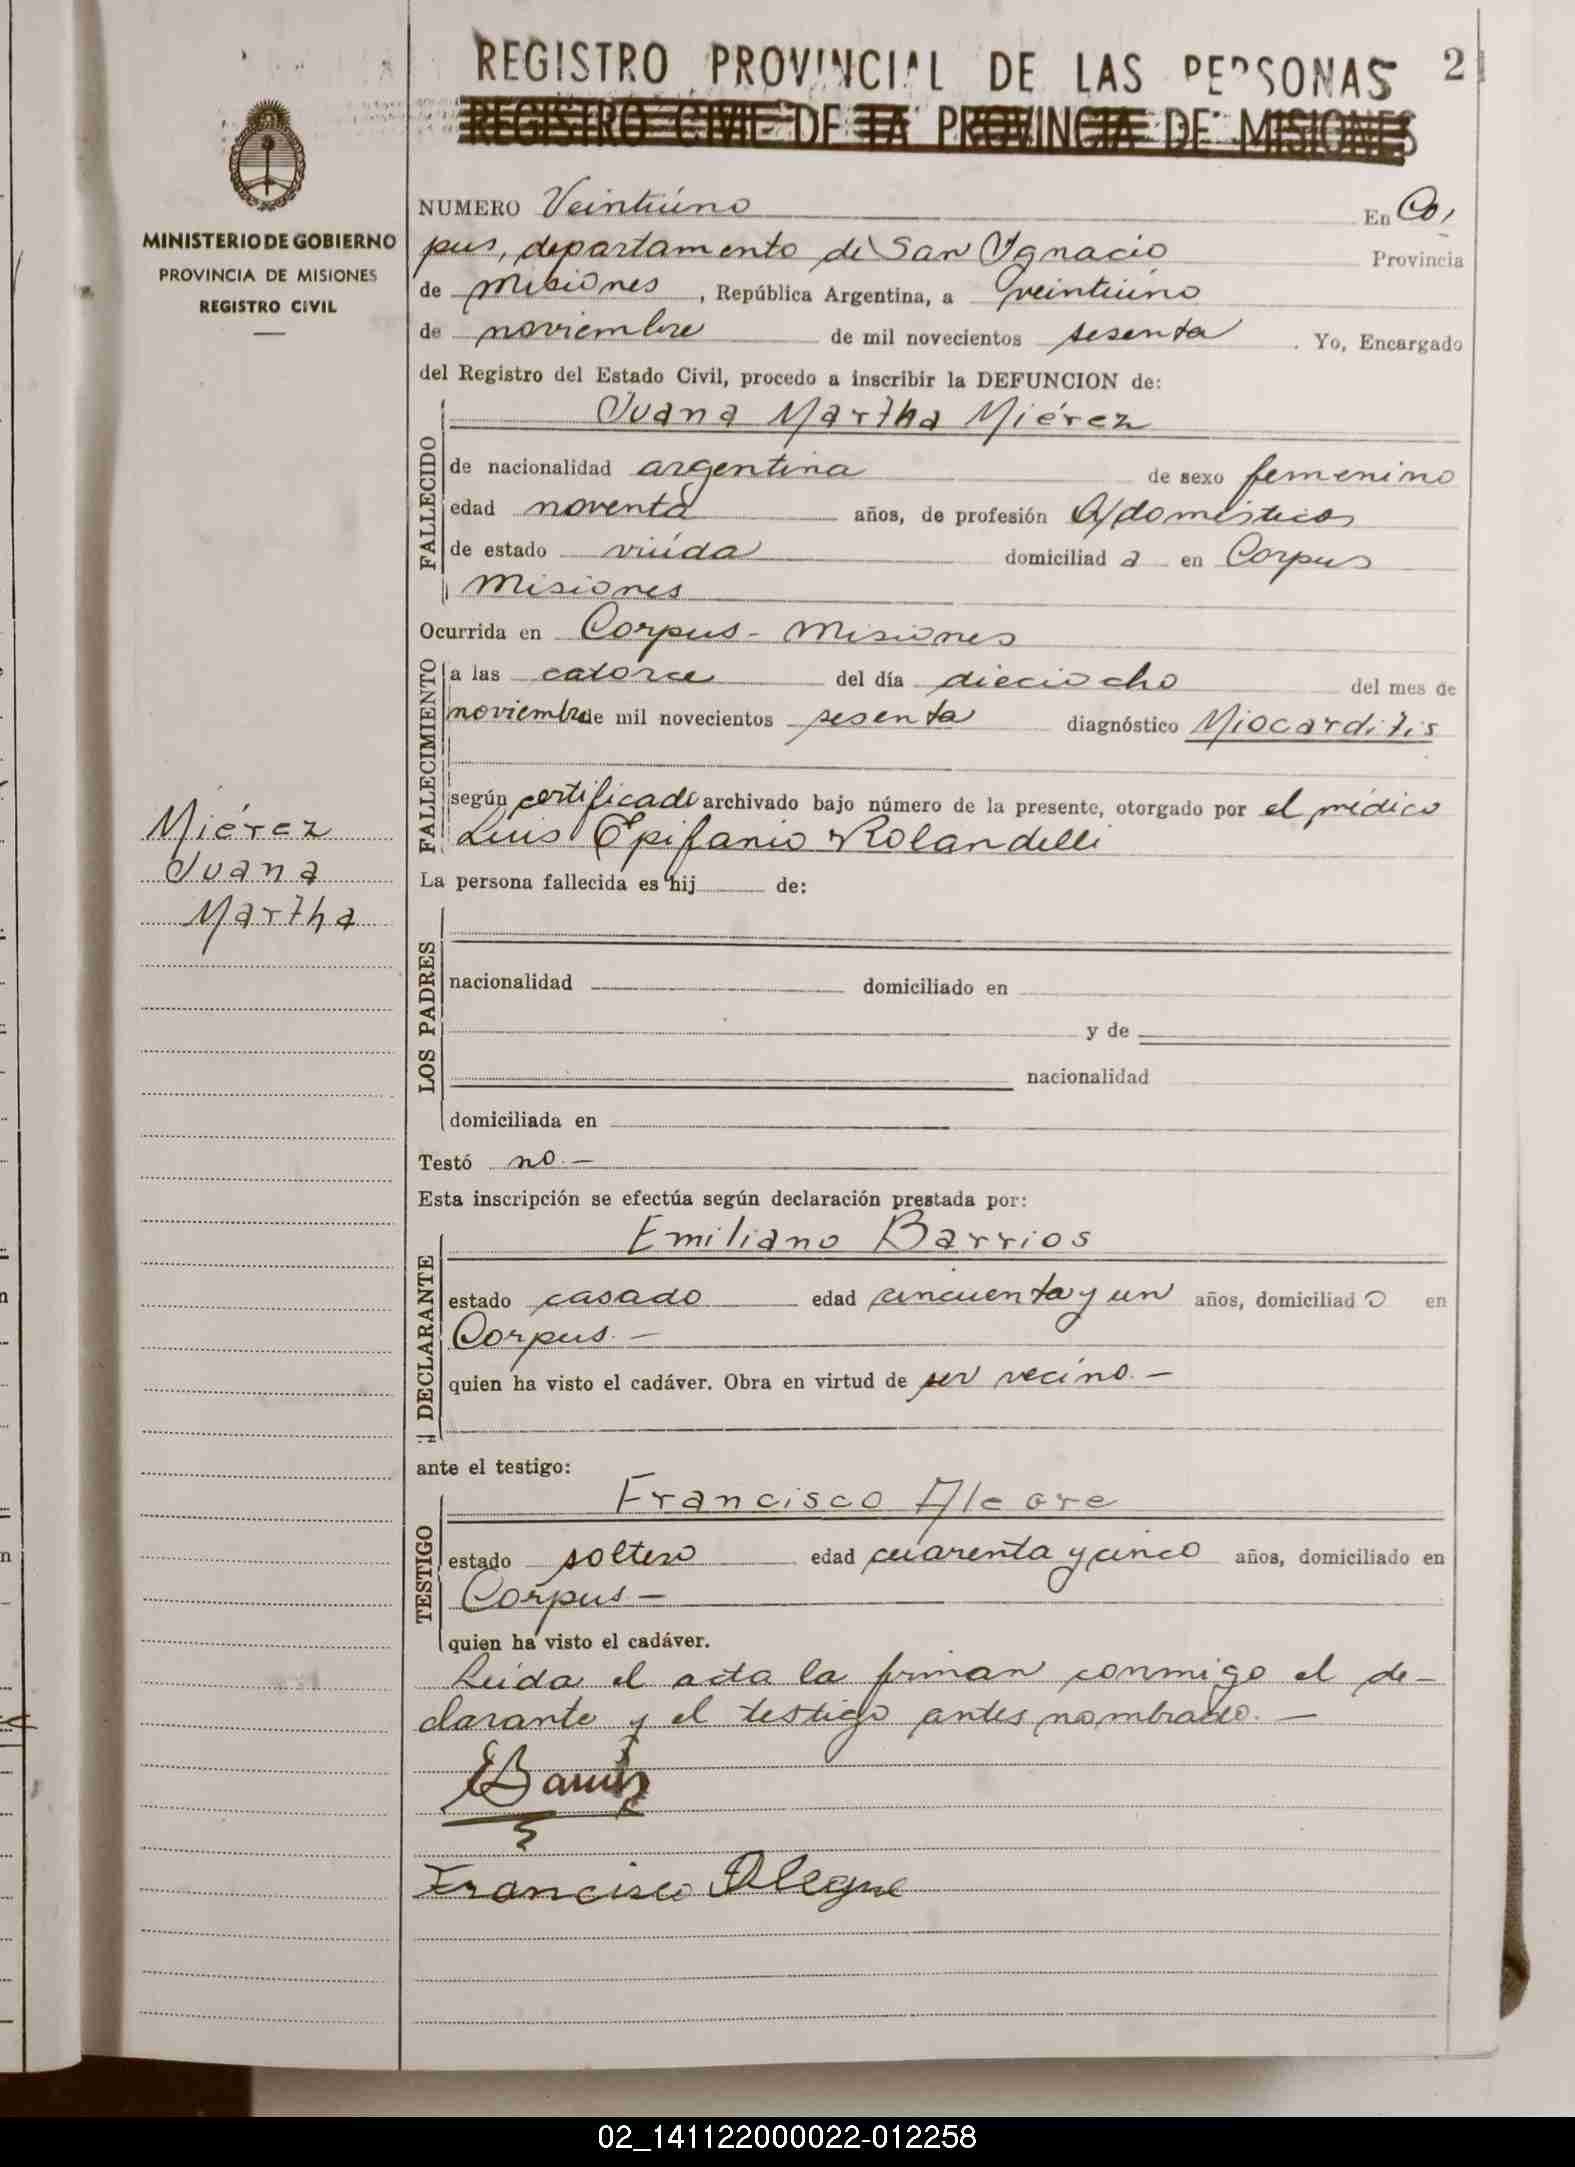 REGISTRO PROVINCIAL DE LAS PERSONAS 21
REGISTRO CIVIL DE LA PROVINCIA DE MISIONES
MINISTERIO DE GOBIERNO
PROVINCIA DE MISIONES
REGISTRO CIVIL
NUMERO Veintiúno En Co,
pus, departamento de San Ignacio Provincia
de Misiones, República Argentina, a veintiúno
de noviembre de mil novecientos sesenta. Yo, Encargado
del Registro del Estado Civil, procedo a inscribir la DEFUNCION de:
Juana Martha Miérez
FALLECIDO
de nacionalidad argentina de sexo femenino
edad noventa años, de profesión Q/domésticos
de estado viúda domiciliad a en Corpus
Misiones
Ocurrida en Corpus - Misiones
FALLECIMIENTO
a las catorce del día dieciocho del mes de
noviembre de mil novecientos sesenta diagnóstico Miocarditis
según certificado archivado bajo número de la presente, otorgado por el médico
Luis Epifanio Rolandelli
Miérez
Juana
Martha
La persona fallecida es hij de:
LOS PADRES
nacionalidad domiciliado en
y de
nacionalidad
domiciliada en
Testó no.-
Esta inscripción se efectúa según declaración prestada por:
Emiliano Barrios
DECLARANTE
estado casado edad cincuenta y un años, domiciliad o en
Corpus.-
quien ha visto el cadáver. Obra en virtud de ser vecino.-
ante el testigo:
Francisco Alegre
TESTIGO
estado soltero edad cuarenta y cinco años, domiciliado en
Corpus-
quien ha visto el cadáver.
Leida el acta la firman conmigo el de-
clarante y el testigo antes nombrado.-
EBarrios
Francisco Alegre
02_141122000022-012258